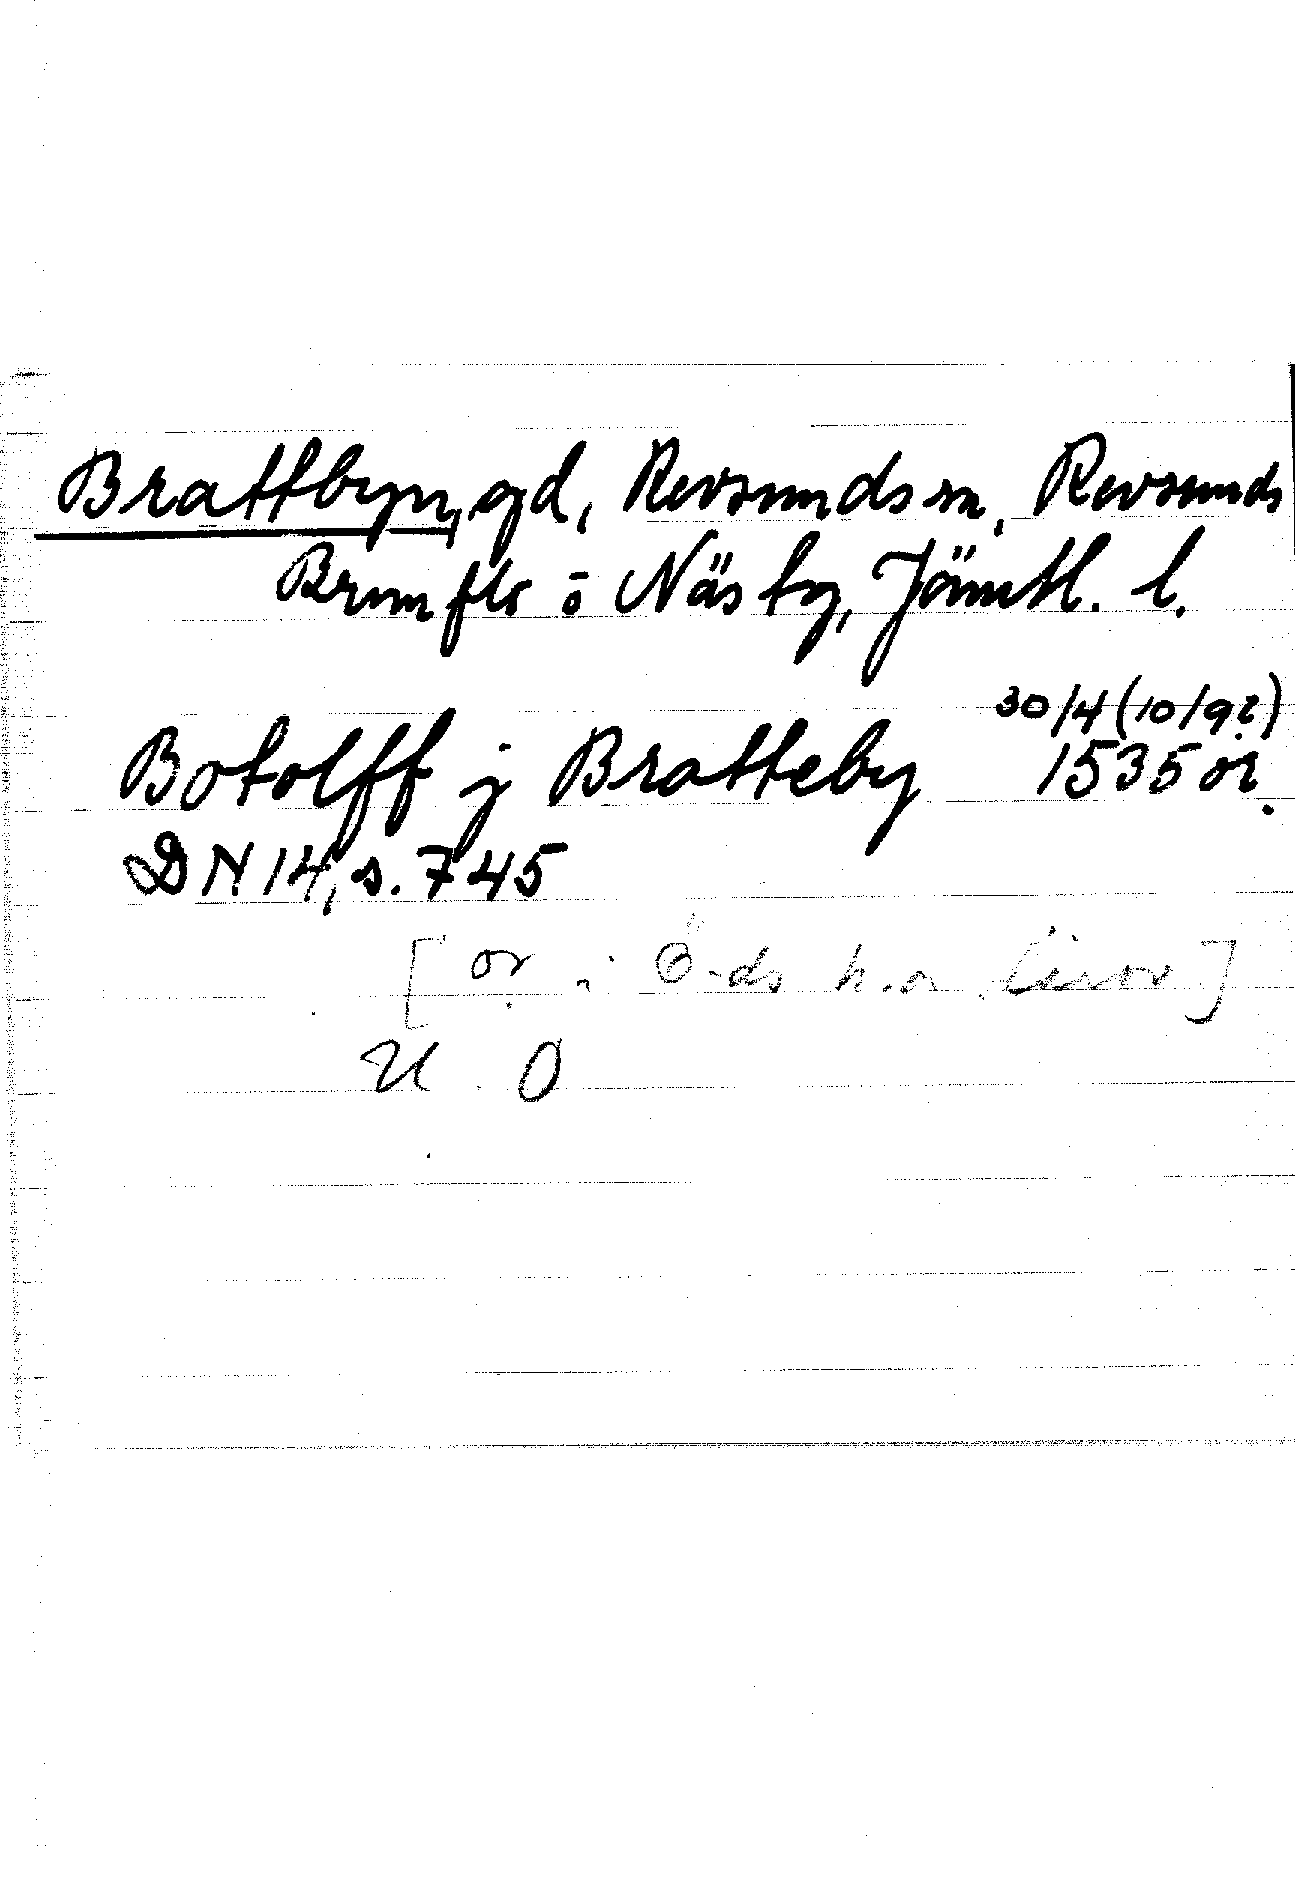 Brattbyn, gd, Revsunds sn, Revsunds
Brunflo ō Näs tg, Jämtl. l.
30/4 (10/9?)
Botolff j Bratteby 1535 or.
DN 14, s. 745
[or i Ö-ds h.a ]
U O